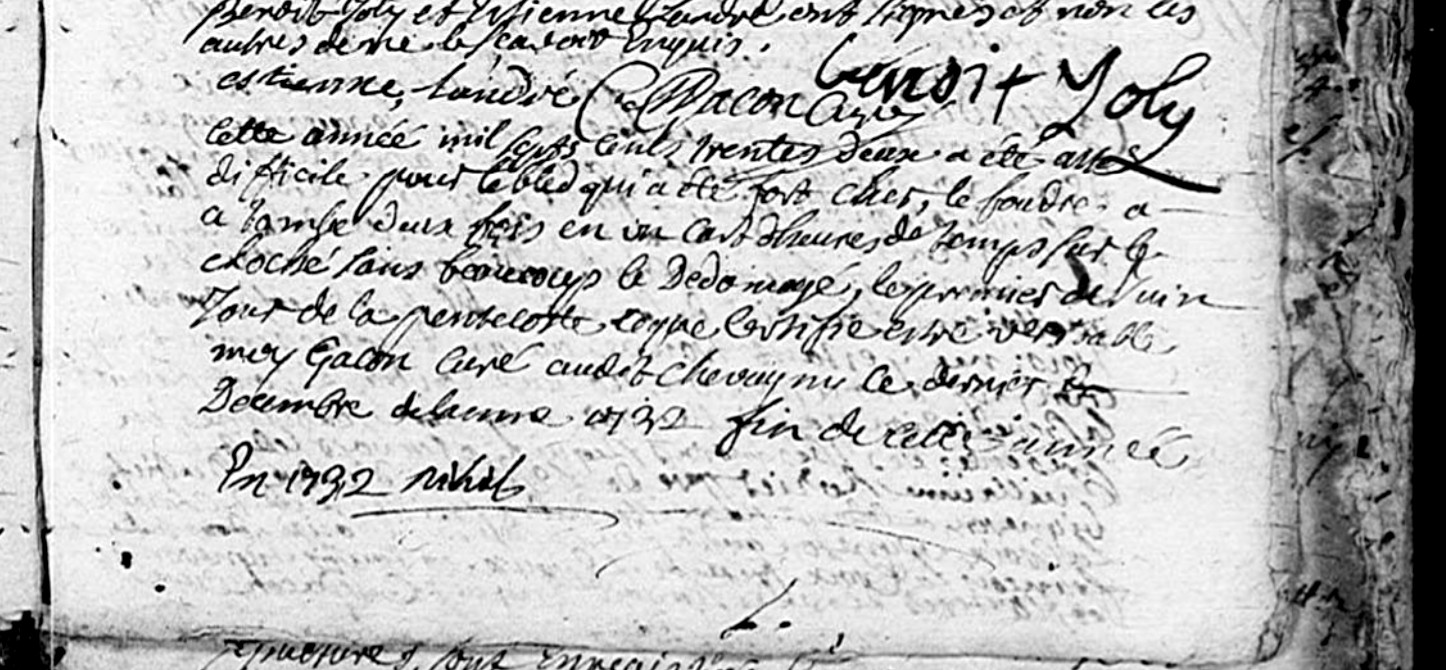 Benoit Joly et Estienne Landré ont signes et non les
autres de ne le scavoir Enquis.
Benoit Joly
estienne, landré Gacon Curé
Cette année mil septs cents trentes deux a été assé
difficile pour le bled qui a été fort cher, le foudre a
a tombé deux fois en un cart d'heures de temps sur le
cloché sans beaucoup le Dedomagé, le premier de Juin
Jour de la pentecoste ce que Certifie estre veritable
moy Gacon Curé audit chevagny ce dernier
Decembre de 1732 fin de cette année
En 1732 nihil
sont